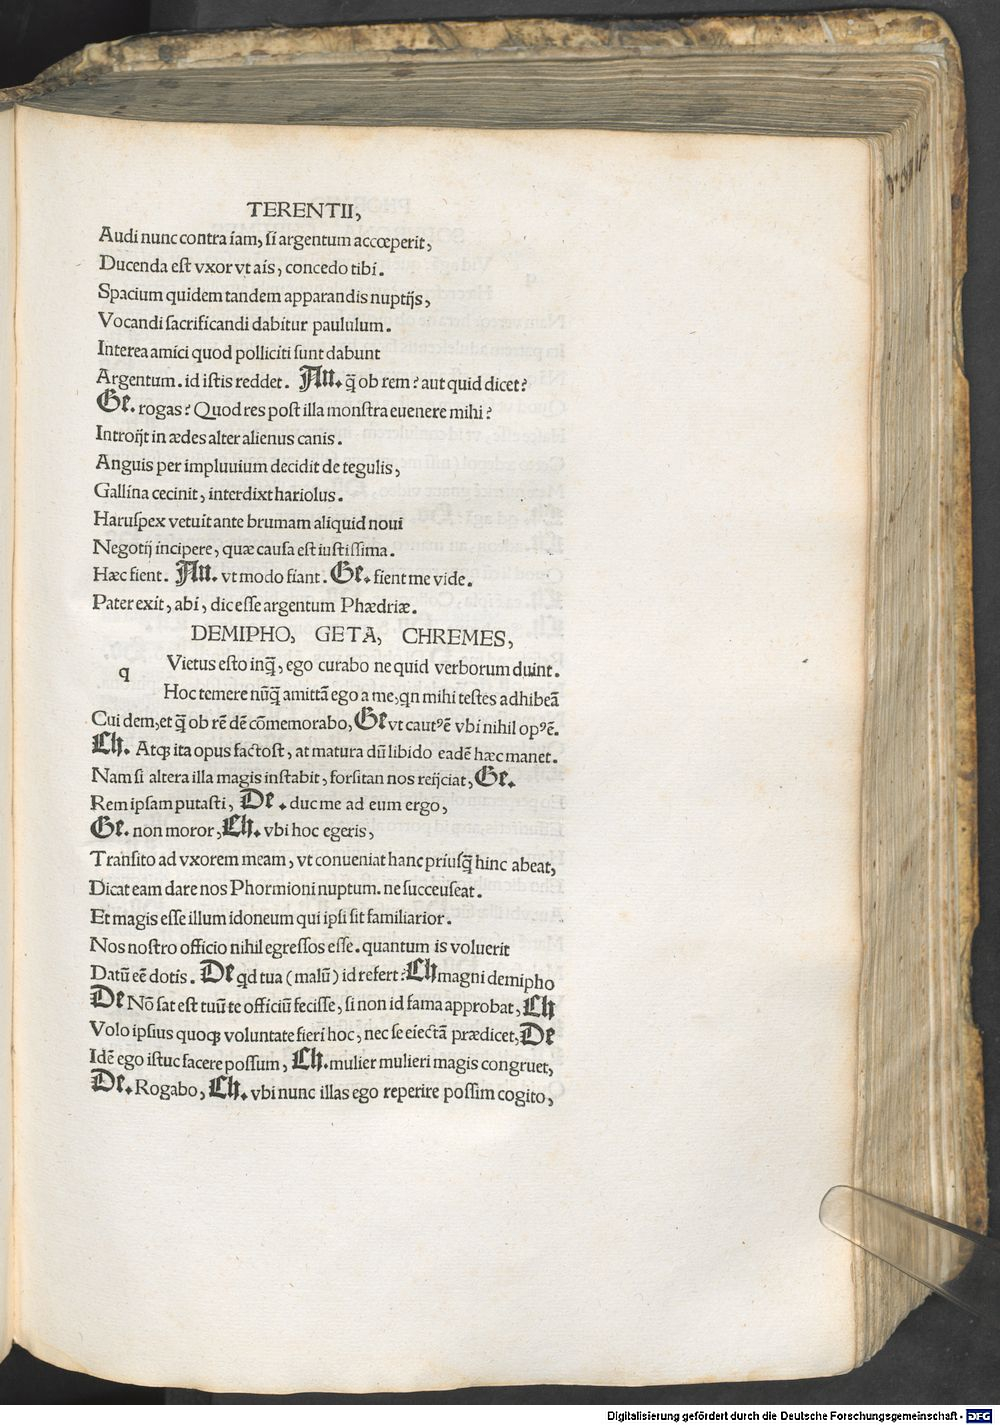 TERENTII,
Audi nunc contra iam, si argentum accœperit,
Ducenda est vxor vt ais, concedo tibi.
Spacium quidem tandem apparandis nuptijs,
Vocandi sacrificandi dabitur paululum.
Interea amici quod polliciti sunt dabunt
Argentum. id istis reddet. An. q̃ ob rem? aut quid dicet?
Ge. rogas? Quod res post illa monstra euenere mihi?
Introijt in ædes alter alienus canis.
Anguis per impluuium decidit de tegulis,
Gallina cecinit, interdixt hariolus.
Haruspex vetuit ante brumam aliquid noui
Negotij incipere, quæ causa est iustissima.
Hæc fient. An. vt modo fiant. Ge. fient me vide.
Pater exit, abi, dic esse argentum Phædriæ.
DEMIPHO, GETA, CHREMES,
q Vietus esto inq̃, ego curabo ne quid verborum duint.
Hoc temere nũq̃ amittã ego a me, qn mihi testes adhibeã
Cui dem, et q̃ ob rẽ dẽ cõmemorabo, Ge vt cautꝰẽ vbi nihil opꝰẽ.
Ch. Atqꝫ ita opus factost, at matura dũ libido eadẽ hæc manet.
Nam si altera illa magis instabit, forsitan nos reijciat, Ge.
Rem ipsam putasti, De. duc me ad eum ergo,
Ge. non moror, Ch. vbi hoc egeris,
Transito ad vxorem meam, vt conueniat hanc priusq̃ hinc abeat,
Dicat eam dare nos Phormioni nuptum. ne succeuseat.
Et magis esse illum idoneum qui ipsi sit familiarior.
Nos nostro officio nihil egressos esse. quantum is voluerit
Datũ eẽ dotis. De qd tua (malũ) id refert? Ch magni demipho
De Nõ sat est tuũ te officiũ fecisse, si non id fama approbat, Ch
Volo ipsius quoqꝫ voluntate fieri hoc, nec se eiectã prædicet, De
Idẽ ego istuc facere possum, Ch. mulier mulieri magis congruet,
De. Rogabo, Ch. vbi nunc illas ego reperire possim cogito,
Digitalisierung gefördert durch die Deutsche Forschungsgemeinschaft - DFG